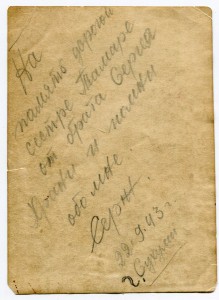 На
память дорогой
сестре Тамаре
от брата Сержа
Храни и помни
обо мне
Серж.
29.9.43 г.
г. Сухуми